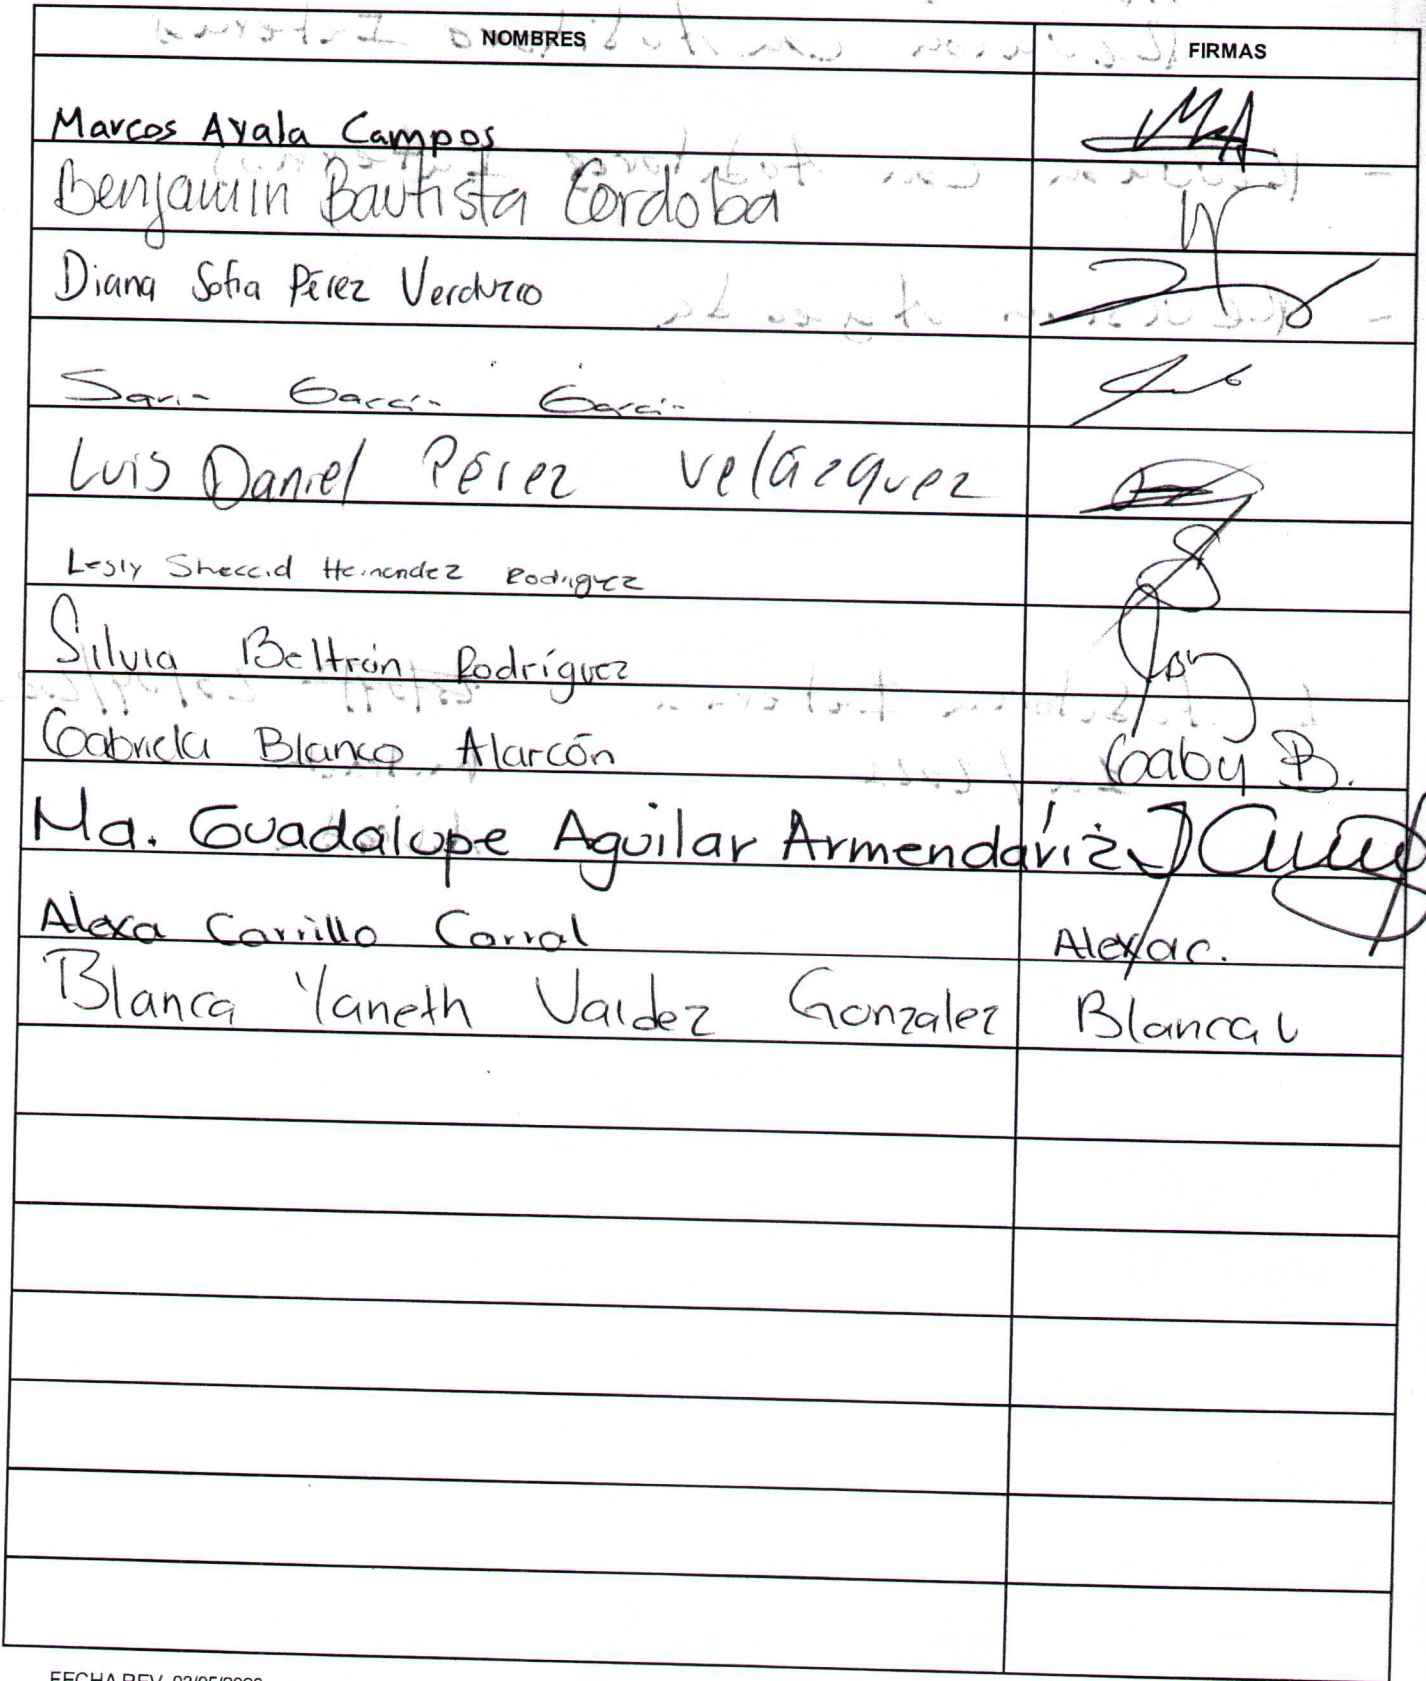 NOMBRES FIRMAS
Marcos Ayala Campos MA
Benjamin Bautista Cordoba
Diana Sofia Pérez Verduzco
García García
Luis Daniel Pérez Velázquez
Lesly Sheccid Hernandez Rodriguez
Silvia Beltrán Rodríguez
Gabriela Blanco Alarcón Gaby B.
Ma. Guadalupe Aguilar Armendáriz
Alexa Carrillo Corral Alexa C.
Blanca Yaneth Valdez Gonzalez Blanca V
FECHA REV.